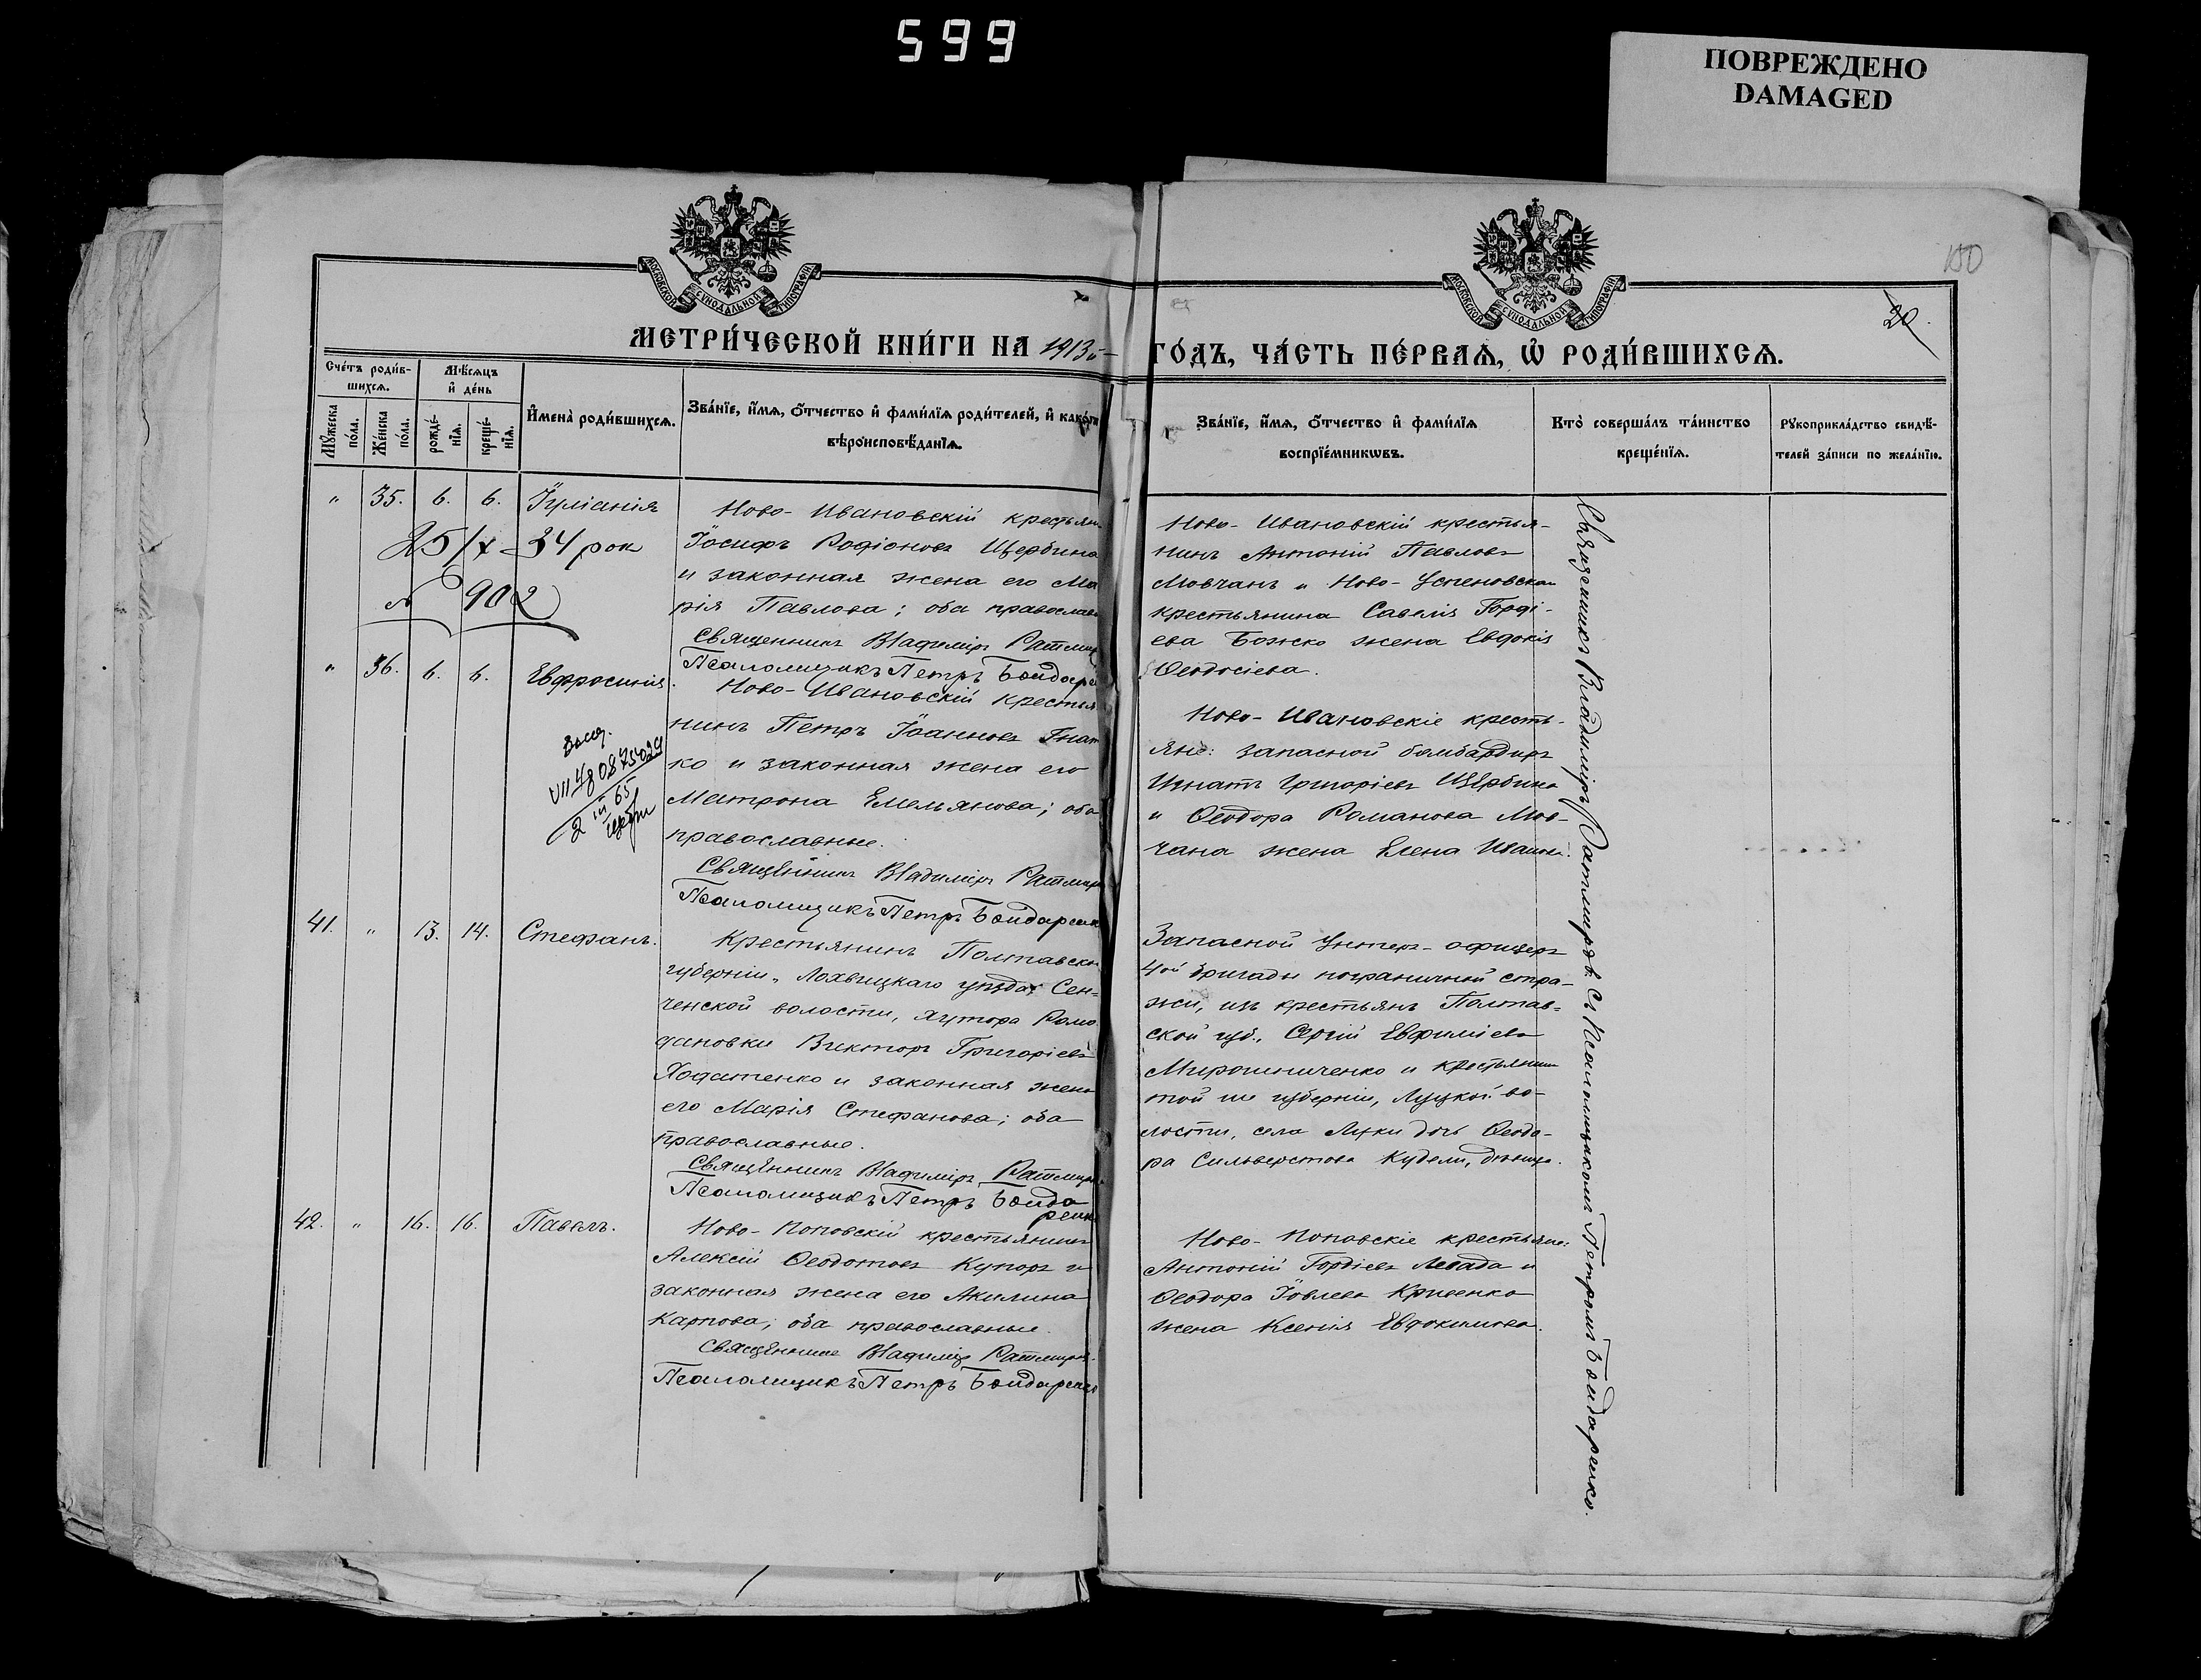 599
ПОВРЕЖДЕНО
DAMAGED
МОСКОВСКОЙ СѴНОДАЛЬНОЙ ТИПОГРАФІИ
МОСКОВСКОЙ СѴНОДАЛЬНОЙ ТИПОГРАФІИ
150
20
МЕТРИ́ЧЕСКОЙ КНИ́ГИ НА 1913й
ГО́ДЪ, ЧА́СТЬ ПЕ́РВАѦ, Ѡ҆ РОДИ́ВШИХСѦ.
Сче́тъ роди́в-
шихсѧ.
Мꙋ́жеска по́ла.
Же́нска по́ла.
Мѣ́сѧцъ
и҆ де́нь
рожде́-
нїѧ.
креще́-
нїѧ.
И҆мена̀ роди́вшихсѧ.
Зва́нїе, и҆́мѧ, ѻ҆́тчество и҆ фами́лїѧ роди́телей, и҆ како́гѡ
вѣроисповѣ́данїѧ.
Зва́нїе, и҆́мѧ, ѻ҆́тчество и҆ фами́лїѧ
воспрїе́мникѡвъ.
Кто̀ соверша́лъ та́инство
креще́нїѧ.
Рꙋкоприкла́дство свидѣ́-
телей за́писи по жела́нїю.
" 35. 6. 6. Іуліанія
25/X-34 рок
№ 902
Ново-Ивановскій крестьян
Іосифъ Родіоновъ Щербина
и законная жена его Ма
рія Павлова; оба православ
Священникъ Владиміръ Ратмир
Псаломщикъ Петръ Бондаре
Ново-Ивановскій крестья-
нинъ Антоній Павловъ
Мовчанъ и Ново-Успеновскаго
крестьянина Савелія Горді-
ева Божко жена Евдокія
Ѳеодосіева.
" 36. 6. 6. Евфросинія.
VII 48 0875029
2 III 65
Ново-Ивановскій крестья
нинъ Петръ Іоанновъ Гнат
ко и законная жена его
Матрона Емельянова; оба
православные.
Священникъ Владиміръ Ратмир
Псаломщикъ Петръ Бондаренк
Ново-Ивановскіе кресть-
яне: запасной бомбардиръ
Игнатъ Григоріевъ Щербина
и Ѳеодора Романова Мов-
чана жена Елена Иванова.
41. " 13. 14. Стефанъ.
Крестьянинъ Полтавской
губерніи, Лохвицкаго уѣзда, Сен-
ченской волости, хутора Ромо
дановки Викторъ Григоріевъ
Ходатенко и законная жена
его Марія Стефанова; оба
православные.
Священникъ Владиміръ Ратмиръ
Псаломщикъ Петръ Бонда
ренк
Запасной унтеръ-офицеръ
4ой бригады пограничной стра-
жи, изъ крестьянъ Полтав-
ской губ., Сергій Евфиміевъ
Мирошниченко и крестьянина
той же губерніи, Луцкой во-
лости, села Луки дочь Ѳеодо-
ра Сильверстова Кудели, дѣвица.
42. " 16. 16. Павелъ.
Ново-Поповскій крестьянинъ
Алексій Ѳеодотовъ Купоръ и
законная жена его Акилина
Карпова; оба православные.
Священникъ Владиміръ Ратмиръ.
Псаломщикъ Петръ Бондаренко
Ново-Поповскіе крестьяне:
Антоній Гордіевъ Левада и
Ѳеодора Іовлева Кривенко
жена Ксенія Евдокимова.
Священникъ Владиміръ Ратмиръ съ псаломщикомъ Петромъ Бондаренко.